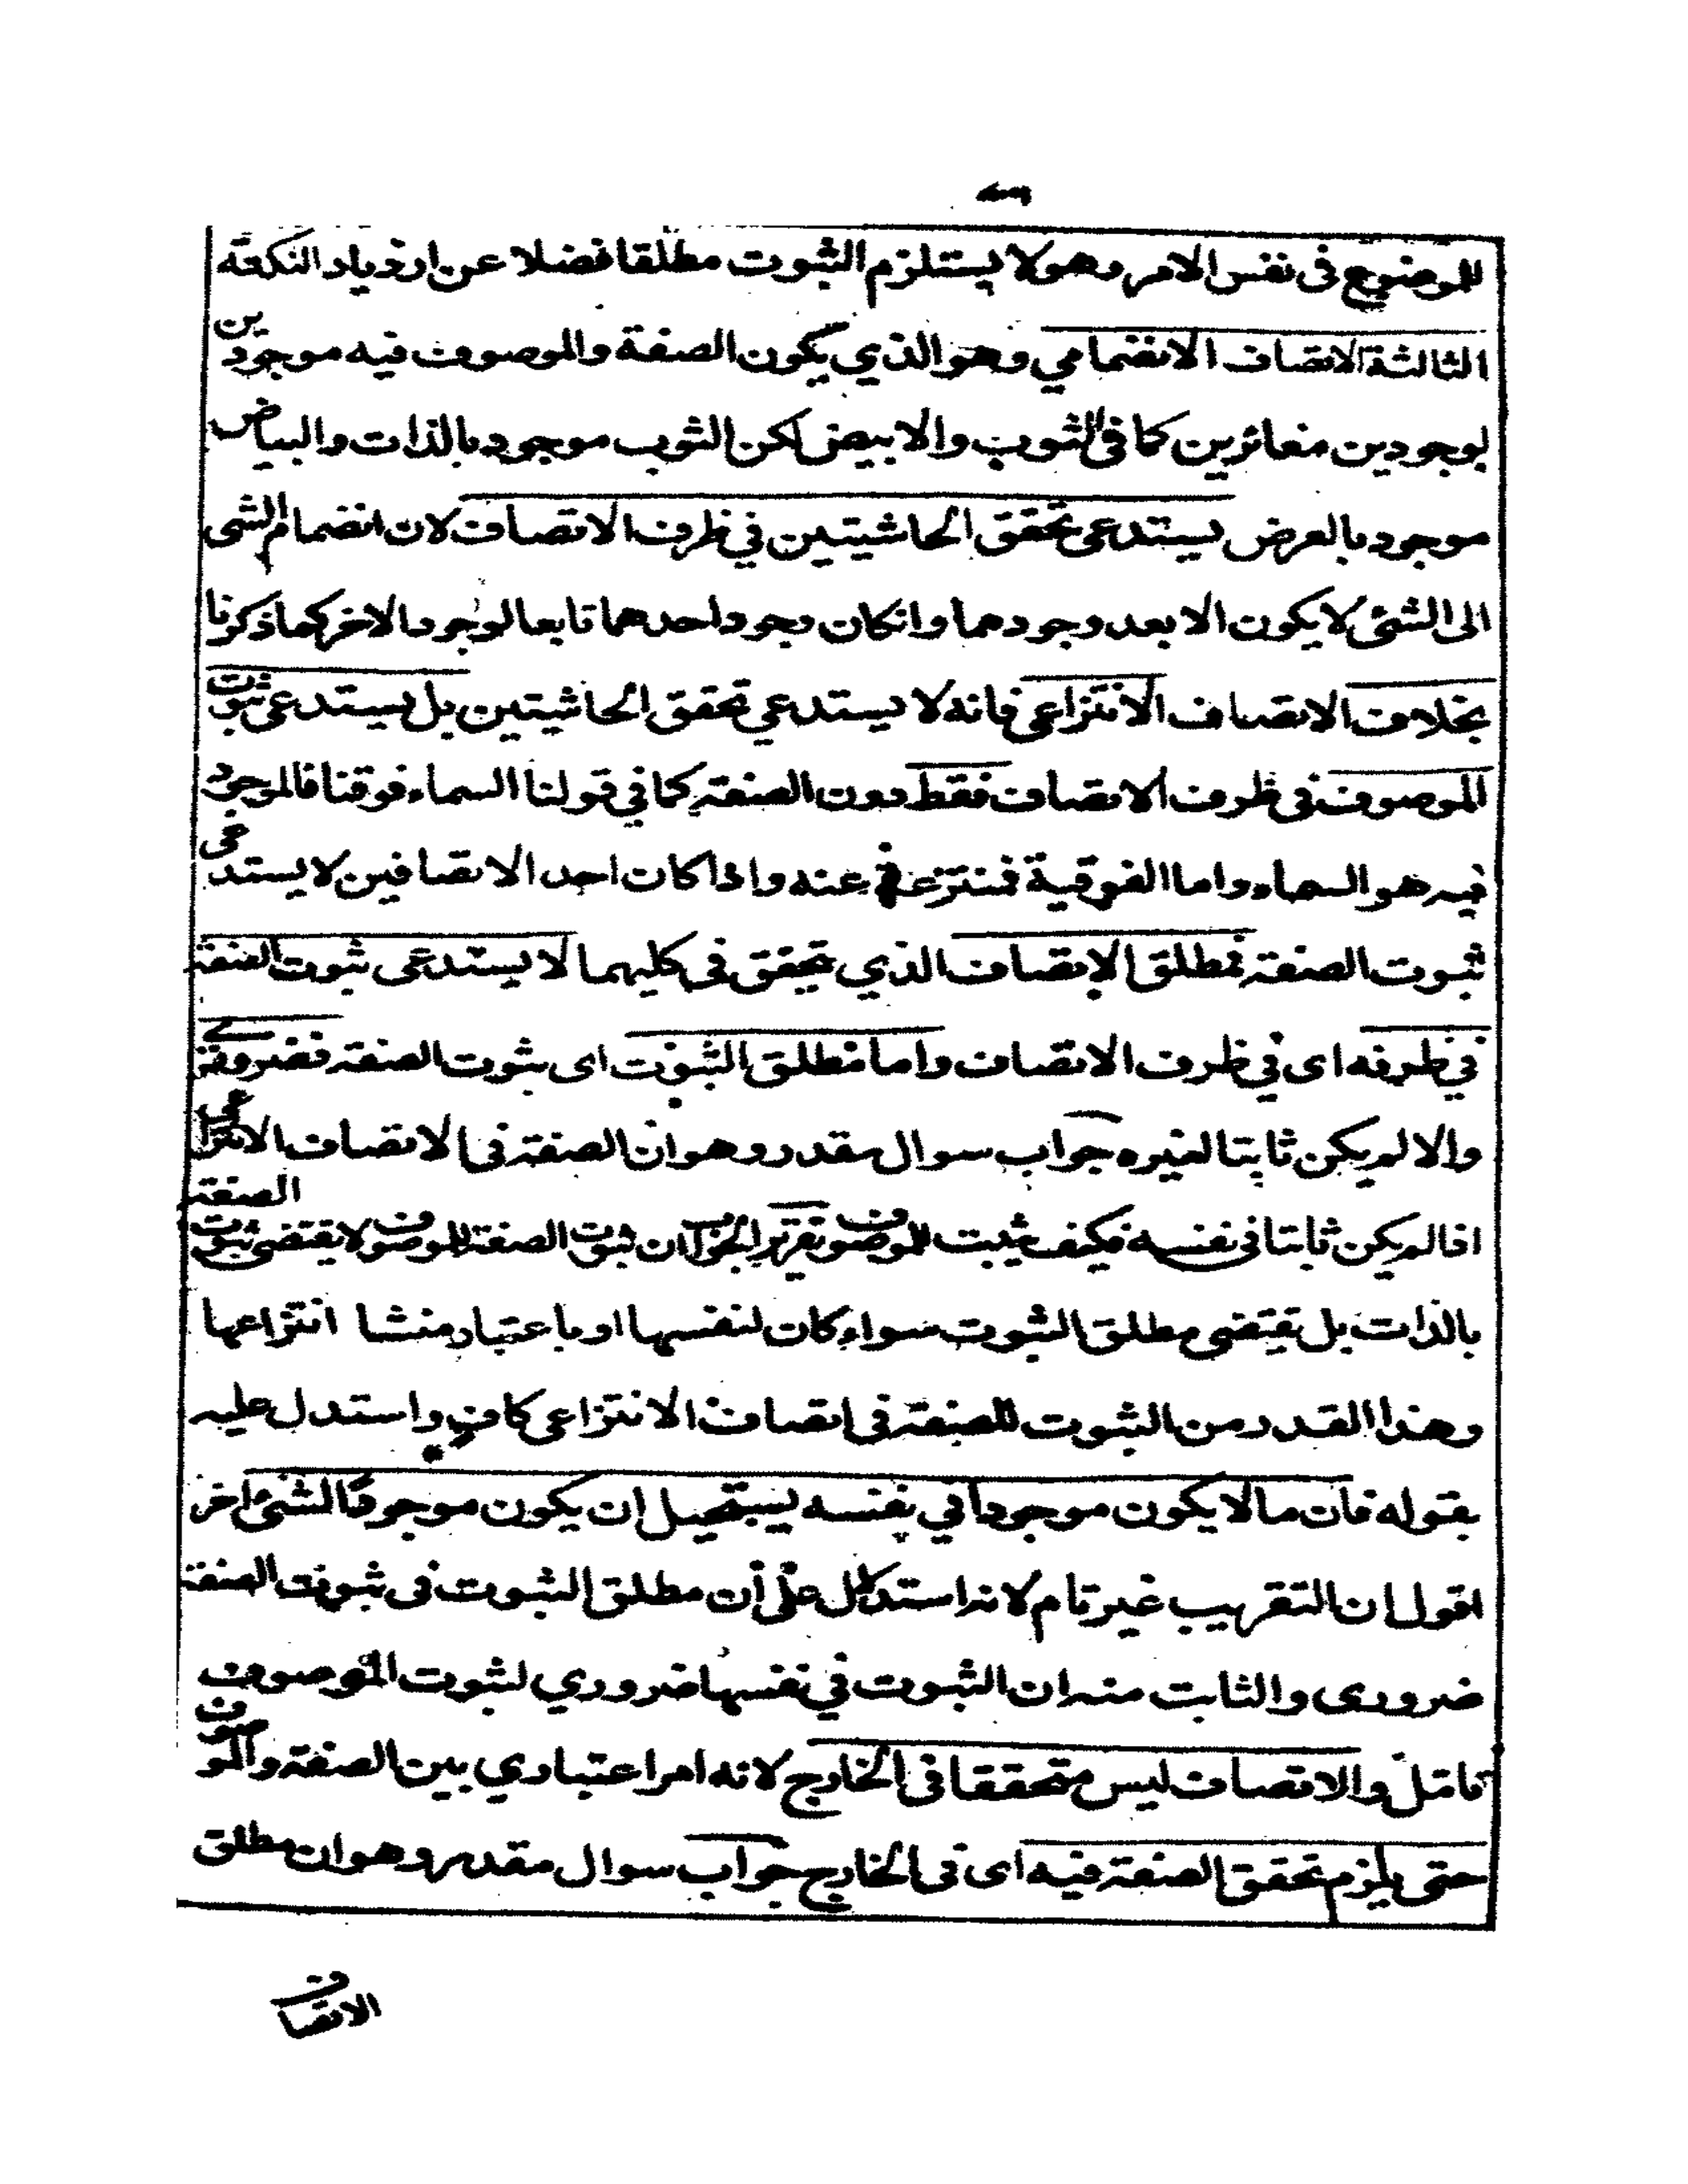 للموضوع فى نفس الامر وهو لا يستلزم الثبوت مطلقا فضلا عن ازدياد النكتة
الثالثة الاتصاف الانضمامي وهو الذي يكون الصفة والموصوف فيه موجودين
بوجودين مغائرين كما فى الثوب والابيض لكن الثوب موجود بالذات والبياض
موجود بالعرض يستدعى تحقق الحاشيتين في ظرف الاتصاف لان انضمام الشى
الى الشئ لا يكون الا بعد وجودهما وانكان وجود احدهما تابعا لوجود الاخر كما ذكرنا
بخلاف الاتصاف الانتزاعى فانه لا يستدعي تحقق الحاشيتين بل يستدعى ثبوت
الموصوف فى ظرف الاتصاف فقط دون الصفة كما في قولنا السماء فوقنا فالموجود
فيه هو السماء واما الفوقية فمنتزعة عنه واذا كان احد الاتصافين لا يستدعى
ثبوت الصفة فمطلق الاتصاف الذي تحقق فى كليهما لا يستدعى ثبوت الصفة
في ظرفه اى في ظرف الاتصاف واما مطلق الثبوت اى ثبوت الصفة فضروري
والا لم يكن ثابتا لغيره جواب سوال مقدر وهو ان الصفة فى الاتصاف الانتزاعى
اذا لم يكن ثابتا فى نفسه فكيف يثبت للموصوف تقرير الجواب ان ثبوت الصفة للموصوف لا يقتضى ثبوت الصفة
بالذات بل يقتضى مطلق الثبوت سواء كان لنفسها او باعتبار منشا انتزاعها
وهذا القدر من الثبوت للصفة فى اتصاف الانتزاعى كاف واستدل عليه
بقوله فان ما لا يكون موجودا في نفسه يستحيل ان يكون موجودا لشئ اخر
اقول ان التقريب غير تام لانه استدل على أن مطلق الثبوت فى ثبوت الصفة
ضرورى والثابت منه ان الثبوت في نفسها ضروري لثبوت الموصوف
فامل والاتصاف ليس متحققا فى الخارج لانه امر اعتباري بين الصفة والموصوف
حتى يلزم تحقق الصفة فيه اى فى الخارج جواب سوال مقدر وهو ان مطلق
الاتصاف